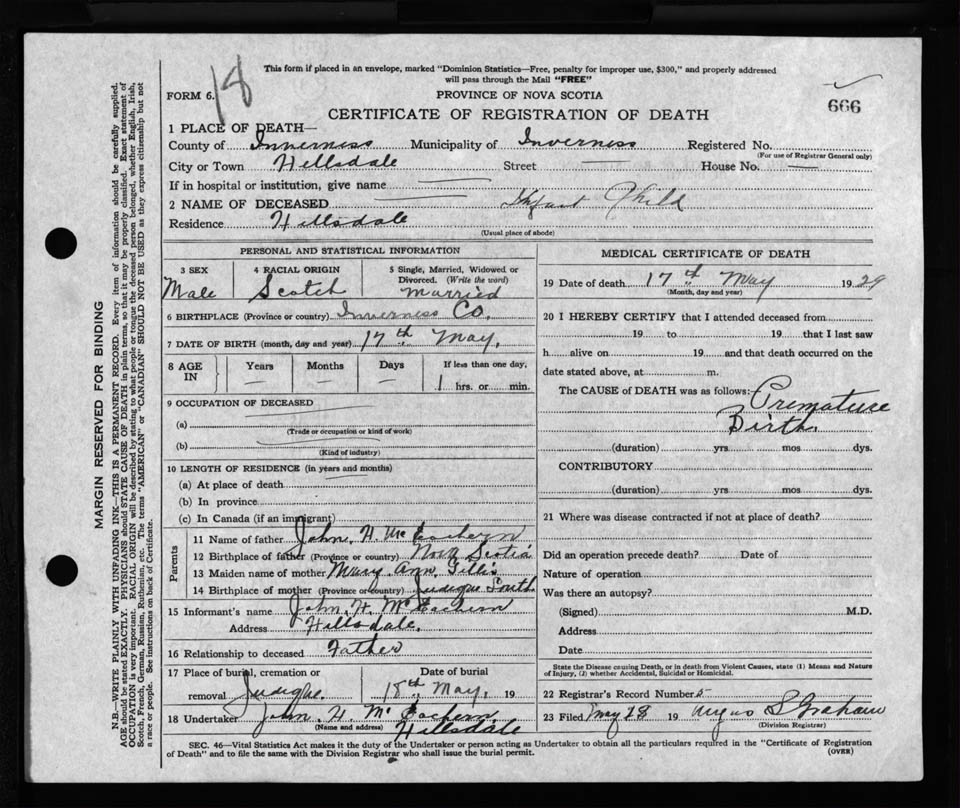 18
This form if placed in an envelope, marked "Dominion Statistics—Free, penalty for improper use, $300," and properly addressed
will pass through the Mail "FREE"
FORM 6.
PROVINCE OF NOVA SCOTIA
666
CERTIFICATE OF REGISTRATION OF DEATH
1 PLACE OF DEATH—
County of Inverness Municipality of Inverness Registered No.
(For use of Registrar General only)
City or Town Hillsdale Street — House No. —
If in hospital or institution, give name —
2 NAME OF DECEASED Infant Child
Residence Hillsdale
(Usual place of abode)
PERSONAL AND STATISTICAL INFORMATION
3 SEX 4 RACIAL ORIGIN 5 Single, Married, Widowed or
Divorced. (Write the word)
Male Scotch Married
6 BIRTHPLACE (Province or country) Inverness Co.
7 DATE OF BIRTH (month, day and year) 17th May,
8 AGE IN Years Months Days If less than one day,
— — — 1 hrs. or min.
9 OCCUPATION OF DECEASED
(a)
(Trade or occupation or kind of work)
(b)
(Kind of industry)
10 LENGTH OF RESIDENCE (in years and months)
(a) At place of death
(b) In province
(c) In Canada (if an immigrant)
Parents
11 Name of father John, H. McEachern
12 Birthplace of father (Province or country) Nova Scotia
13 Maiden name of mother Mary Ann Gillis
14 Birthplace of mother (Province or country) Judique South
15 Informant's name John, H. McEachern
Address Hillsdale.
16 Relationship to deceased Father
17 Place of burial, cremation or Date of burial
removal Judique. 18th May, 19
18 Undertaker John, H. McEachern
(Name and address) Hillsdale
MEDICAL CERTIFICATE OF DEATH
19 Date of death 17th May 1929
(Month, day and year)
20 I HEREBY CERTIFY that I attended deceased from
19 to 19 that I last saw
h alive on 19 and that death occurred on the
date stated above, at m.
The CAUSE of DEATH was as follows: Premature
Birth.
(duration) yrs mos dys.
CONTRIBUTORY
(duration) yrs. mos. dys.
21 Where was disease contracted if not at place of death?
Did an operation precede death? Date of
Nature of operation
Was there an autopsy?
(Signed) M.D.
Address
Date
State the Disease causing Death, or in death from Violent Causes, state (1) Means and Nature
of Injury, (2) whether Accidental, Suicidal or Homicidal.
22 Registrar's Record Number 5
23 Filed May 28 19 Angus S Graham
(Division Registrar)
SEC. 46—Vital Statistics Act makes it the duty of the Undertaker or person acting as Undertaker to obtain all the particulars required in the "Certificate of Registration
of Death" and to file the same with the Division Registrar who shall issue the burial permit.
(OVER)
MARGIN RESERVED FOR BINDING
N.B.—WRITE PLAINLY WITH UNFADING INK—THIS IS A PERMANENT RECORD. Every item of information should be carefully supplied.
AGE should be stated EXACTLY. PHYSICIANS should STATE CAUSE OF DEATH in plain terms, so that it may be properly classified. Exact statement of
OCCUPATION is very important. RACIAL ORIGIN will be described by stating to what people or tongue the deceased person belonged, whether English, Irish,
Scotch, French, German, Russian, Ruthenian, etc. The terms "AMERICAN" or "CANADIAN" SHOULD NOT BE USED as they express citizenship but not
a race or people. See instructions on back of Certificate.